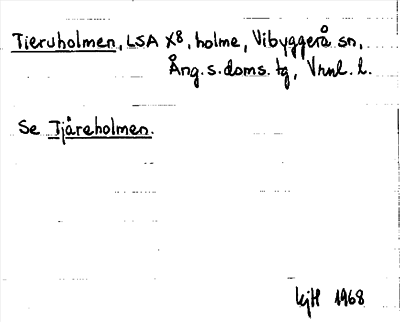 Tieruholmen, LSA X8, holme, Vibyggerå sn,
Ång. s. doms. tg, Vnnl. l.
Se Tjåreholmen.
kjH 1968